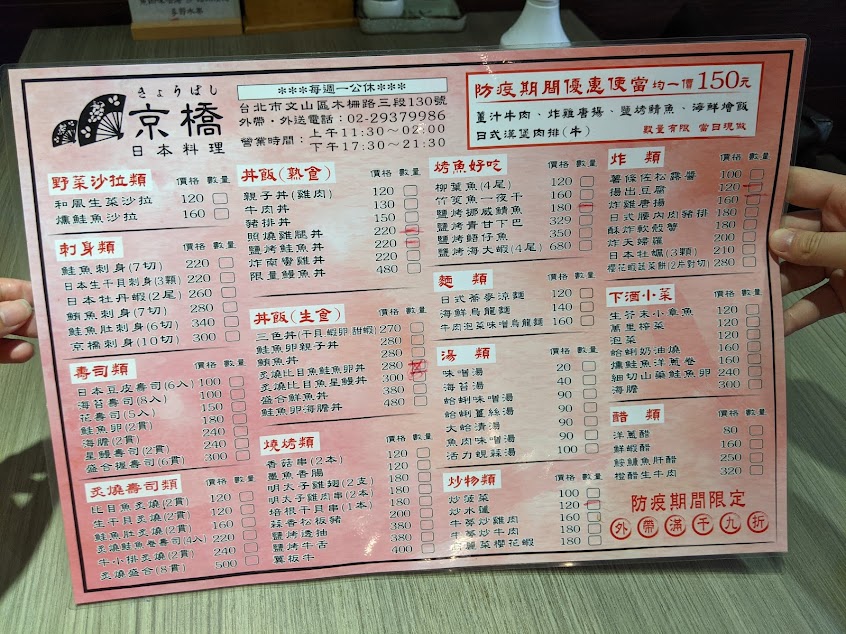 きょうばし
京橋
日本料理
***每週一公休***
台北市文山區木柵路三段130號
外帶・外送電話：02-29379986
營業時間：上午11:30~02:00
下午17:30~21:30
防疫期間優惠便當 均一價 150元
薑汁牛肉、炸雞唐揚、鹽烤鯖魚、海鮮燴飯
日式漢堡肉排(牛)
數量有限 當日現做
野菜沙拉類 價格 數量
和風生菜沙拉 120
燻鮭魚沙拉 160
刺身類 價格 數量
鮭魚刺身(7切) 220
日本生干貝刺身(3顆) 220
日本牡丹蝦(2尾) 260
鮪魚刺身(7切) 280
鮭魚肚刺身(6切) 340
京橋刺身(10切) 300
壽司類 價格 數量
日本豆皮壽司(6入) 100
海苔壽司(8入) 100
花壽司(5入) 150
鮭魚卵(2貫) 180
海膽(2貫) 240
星鰻壽司(2貫) 240
盛合握壽司(6貫) 300
炙燒壽司類 價格 數量
比目魚炙燒(2貫) 120
生干貝炙燒(2貫) 120
鮭魚肚炙燒(2貫) 160
炙燒鮭魚卷壽司(4入) 220
牛小排炙燒(2貫) 240
炙燒盛合(8貫) 500
丼飯(熟食) 價格 數量
親子丼(雞肉) 120
牛肉丼 130
豬排丼 150
照燒雞腿丼 220
鹽烤鮭魚丼 220
炸南蠻雞丼 220
限量鰻魚丼 480
丼飯(生食) 價格 數量
三色丼(干貝 蝦卵 甜蝦) 270
鮭魚卵親子丼 280
鮪魚丼 280
炙燒比目魚鮭魚卵丼 280
炙燒比目魚星鰻丼 300
盛合鮮魚丼 380
鮭魚卵海膽丼 480
燒烤類 價格 數量
香菇串(2本) 120
墨魚香腸 120
明太子雞翅(2支) 160
明太子雞肉串(2本) 180
培根干貝串(1本) 200
蒜香松板豬 380
鹽烤透抽 380
鹽烤牛舌 400
翼板牛
烤魚好吃 價格 數量
柳葉魚(4尾) 120
竹筴魚一夜干 160
鹽烤挪威鯖魚 180
鹽烤青甘下巴 329
鹽烤𩵚仔魚 350
鹽烤大蝦(4尾) 680
麵類 價格 數量
日式蕎麥涼麵 120
海鮮烏龍麵 140
牛肉泡菜味噌烏龍麵 160
湯類 價格 數量
味噌湯 20
海苔湯 40
蛤蜊味噌湯 90
蛤蜊薑絲湯 90
大蛤清湯 90
魚肉味噌湯 90
活力蜆蒜湯 100
炒物類 價格 數量
炒菠菜 100
炒水蓮 120
牛蒡炒雞肉 160
牛蒡炒牛肉 180
高麗菜櫻花蝦 180
炸類 價格 數量
薯條佐松露醬 100
揚出豆腐 120
炸雞唐揚 160
日式腰內肉豬排 180
酥炸軟殼蟹 180
炸天婦羅 200
日本牡蠣(3顆) 210
櫻花蝦蔬菜餅(2片對切) 280
下酒小菜 價格 數量
生芥末小章魚 120
萬里榨菜 120
泡菜 120
蛤蜊奶油燒 160
燻鮭魚洋蔥卷 160
細切山藥鮭魚卵 240
海膽 300
醋類 價格 數量
洋蔥醋 80
鮮蝦醋 160
鮟鱇魚肝醋 250
橙醋生牛肉 320
防疫期間限定
外帶滿千九折